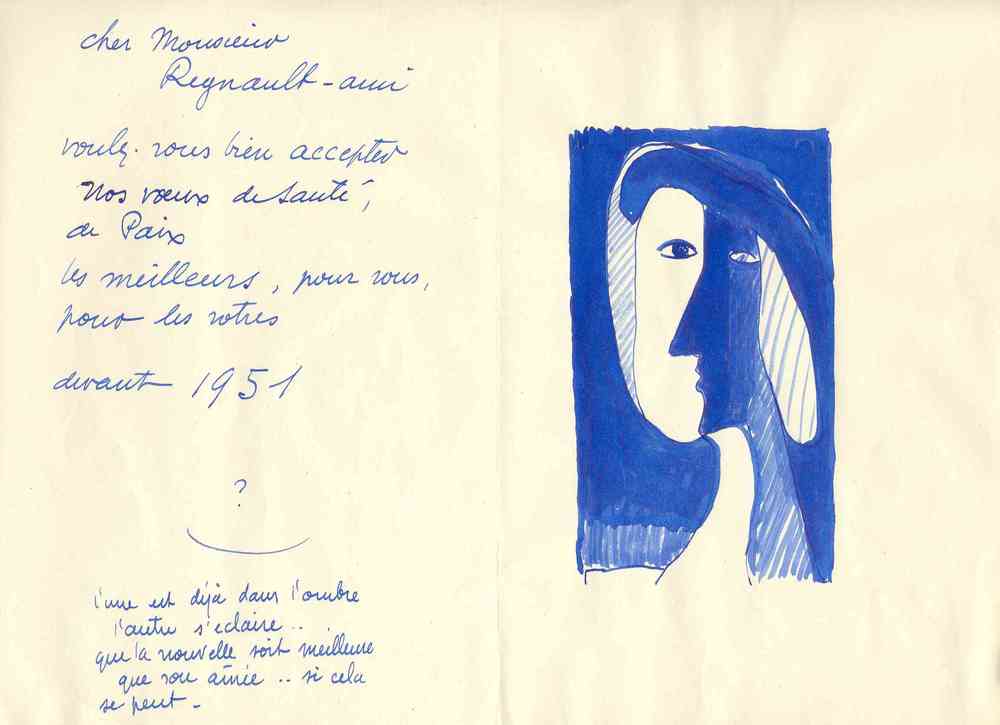 cher Monsieur
Regnault-ami
voulez-vous bien accepter
Nos vœux de Santé,
de Paix
les meilleurs, pour vous,
pour les votres
devant 1951
?
l'une est déjà dans l'ombre
l'autre s'eclaire ..
que la nouvelle soit meilleure
que son aînée .. si cela
se peut -